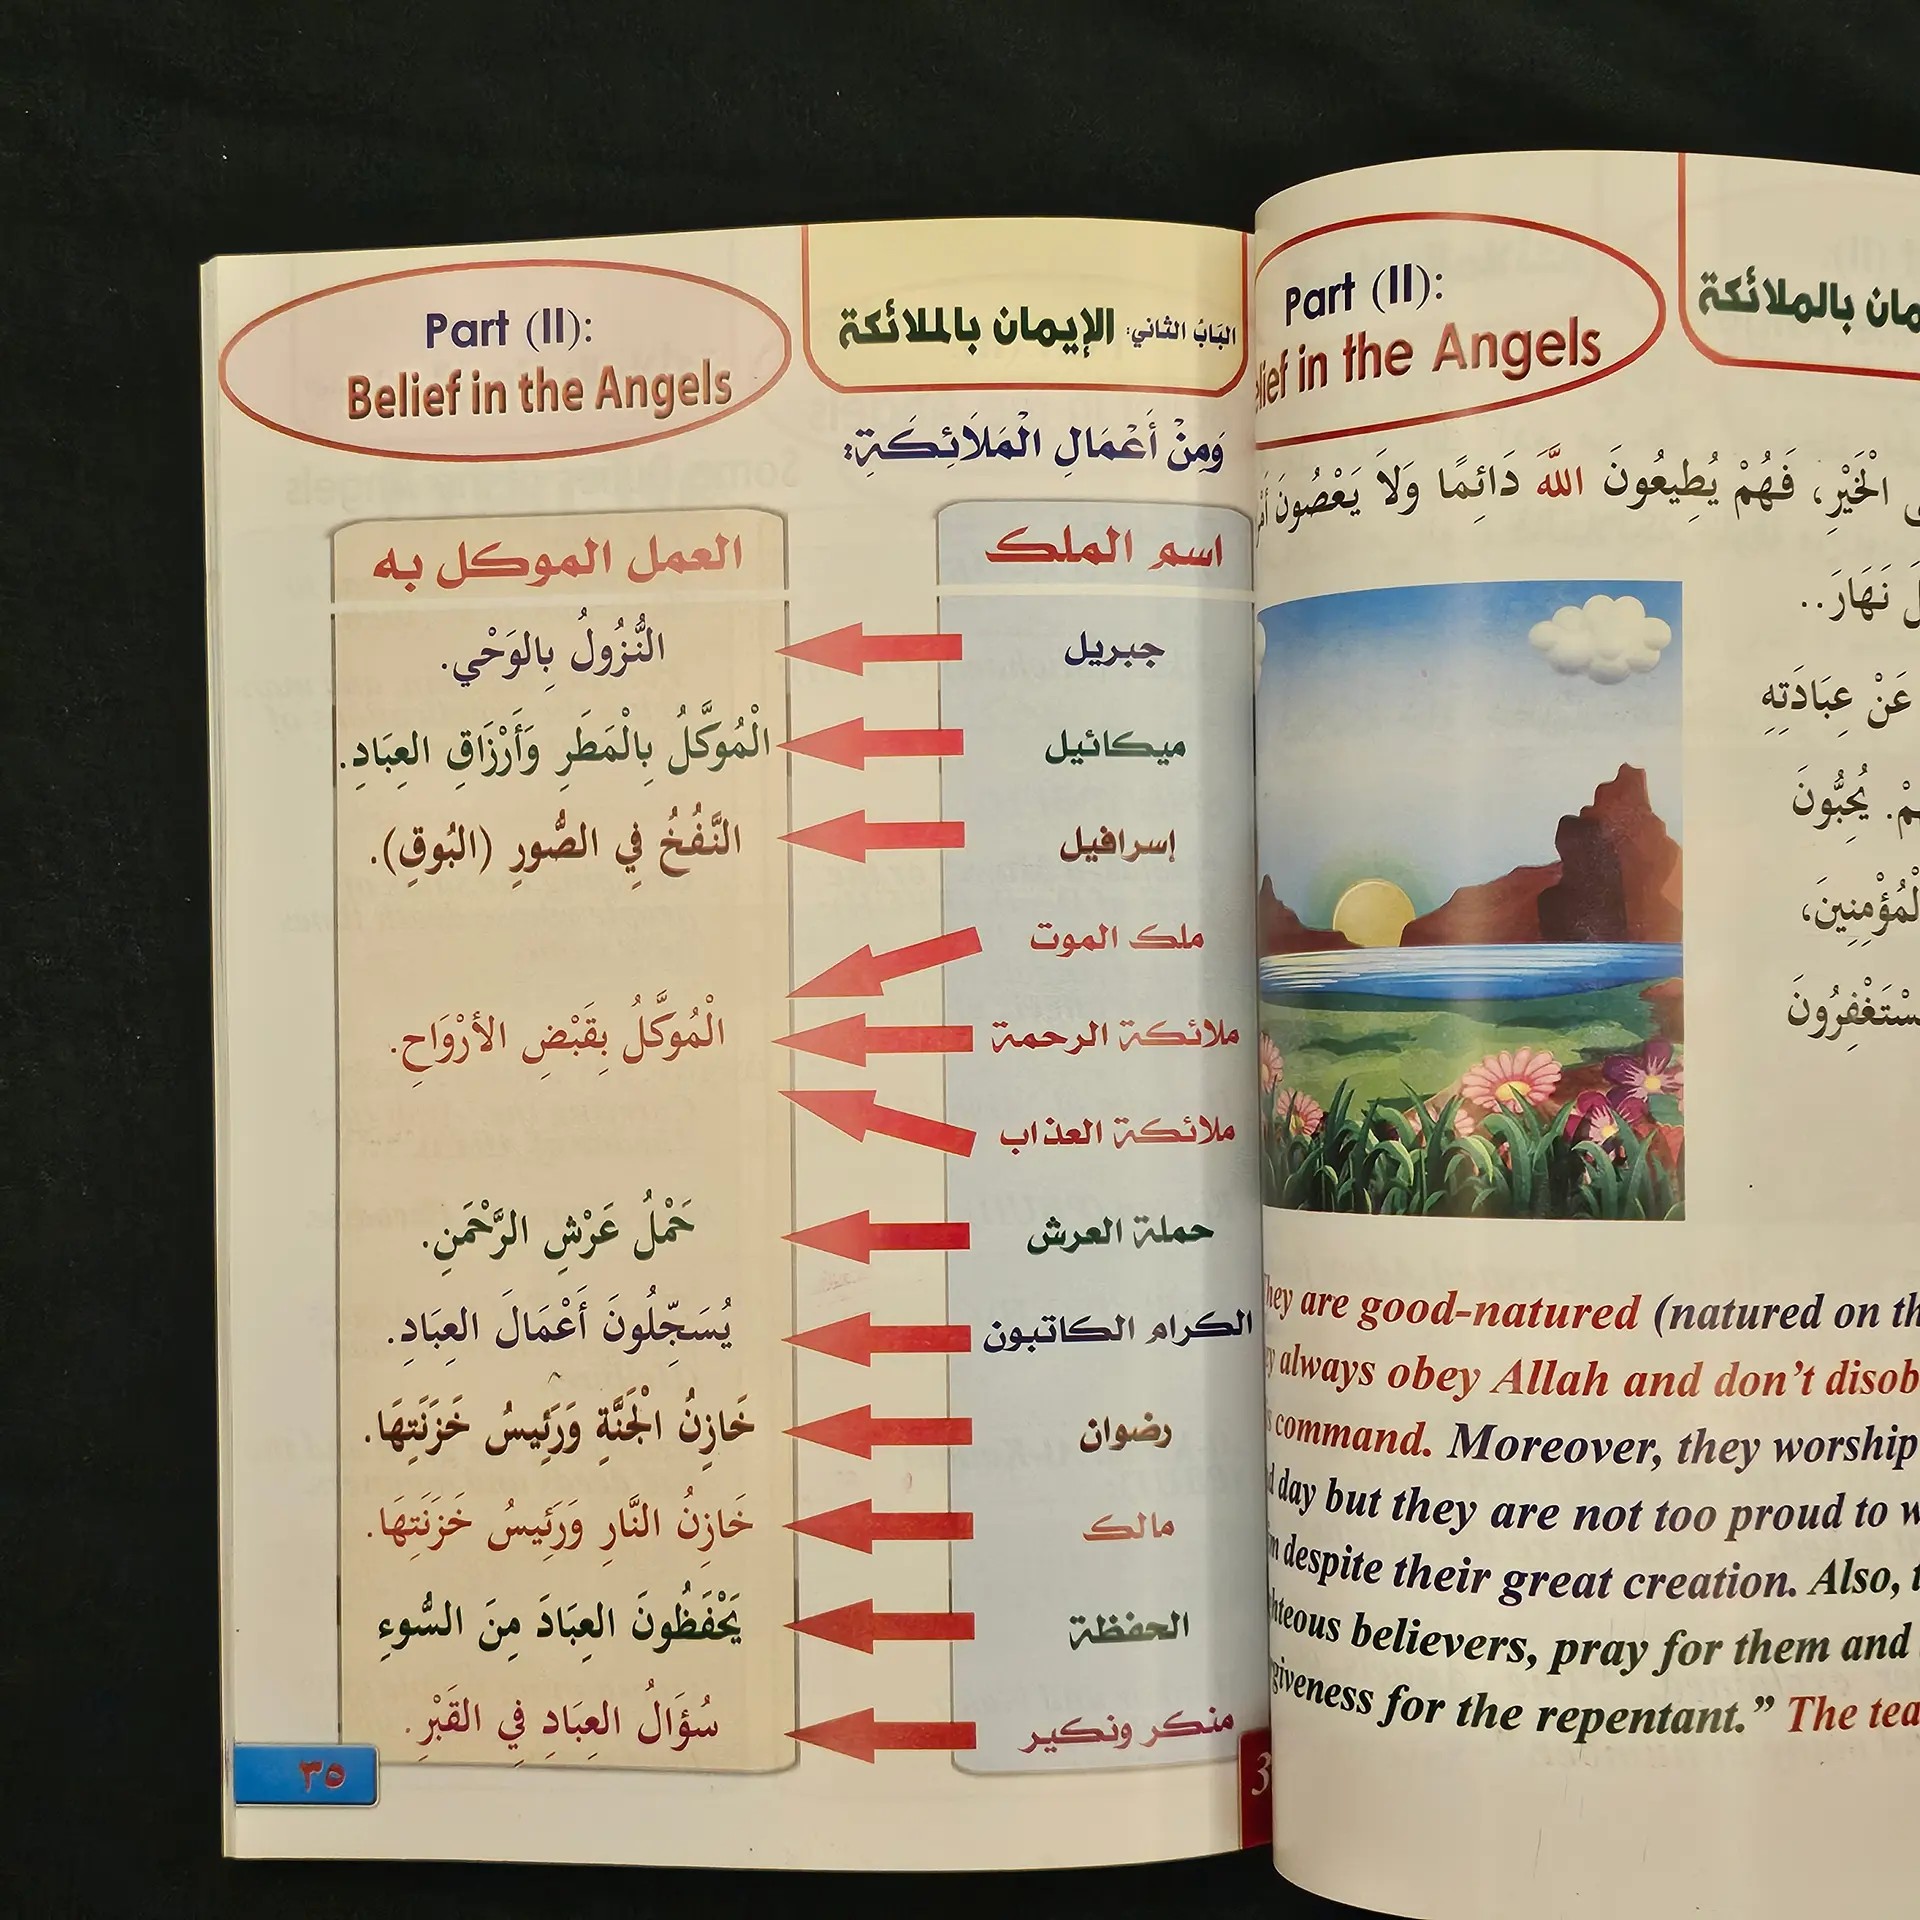 Part (II):
Belief in the Angels
البَابُ الثاني: الإيمان بالملائكة
وَمِنْ أَعْمَالِ الْمَلَائِكَةِ:
اسم الملك
العمل الموكل به
جبريل
النُّزُولُ بِالوَحْيِ.
ميكائيل
الْمُوَكَّلُ بِالْمَطَرِ وَأَرْزَاقِ العِبَادِ.
إسرافيل
النَّفْخُ فِي الصُّورِ (البُوقِ).
ملك الموت
ملائكة الرحمة
الْمُوَكَّلُ بِقَبْضِ الأَرْوَاحِ.
ملائكة العذاب
حملة العرش
حَمْلُ عَرْشِ الرَّحْمَنِ.
الكرام الكاتبون
يُسَجِّلُونَ أَعْمَالَ العِبَادِ.
رضوان
خَازِنُ الْجَنَّةِ وَرَئِيسُ خَزَنَتِهَا.
مالك
خَازِنُ النَّارِ وَرَئِيسُ خَزَنَتِهَا.
الحفظة
يَحْفَظُونَ العِبَادَ مِنَ السُّوءِ
منكر ونكير
سُؤَالُ العِبَادِ فِي القَبْرِ.
٣٥
Part (II):
in the Angels
بالملائكة
الْخَيْرِ، فَهُمْ يُطِيعُونَ اللَّهَ دَائِمًا وَلَا يَعْصُونَ
نَهَارَ..
عَنْ عِبَادَتِهِ
يُحِبُّونَ
الْمُؤْمِنِينَ،
are good-natured (natured on
always obey Allah and don't
command. Moreover, they worship
day but they are not too proud to
despite their great creation. Also,
believers, pray for them and
for the repentant." The